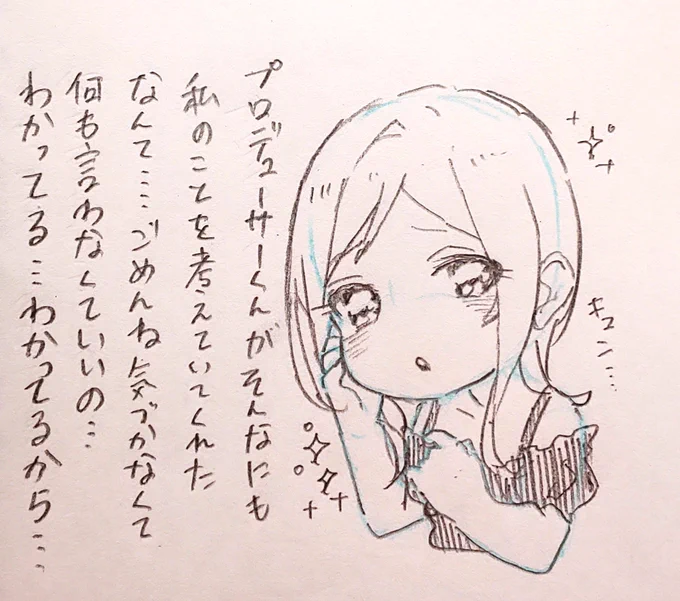 プロデューサーくんがそんなにも
私のことを考えていてくれた
なんて……ごめんね気づかなくて
何も言わなくていいの…
わかってる…わかってるから……
キュン…